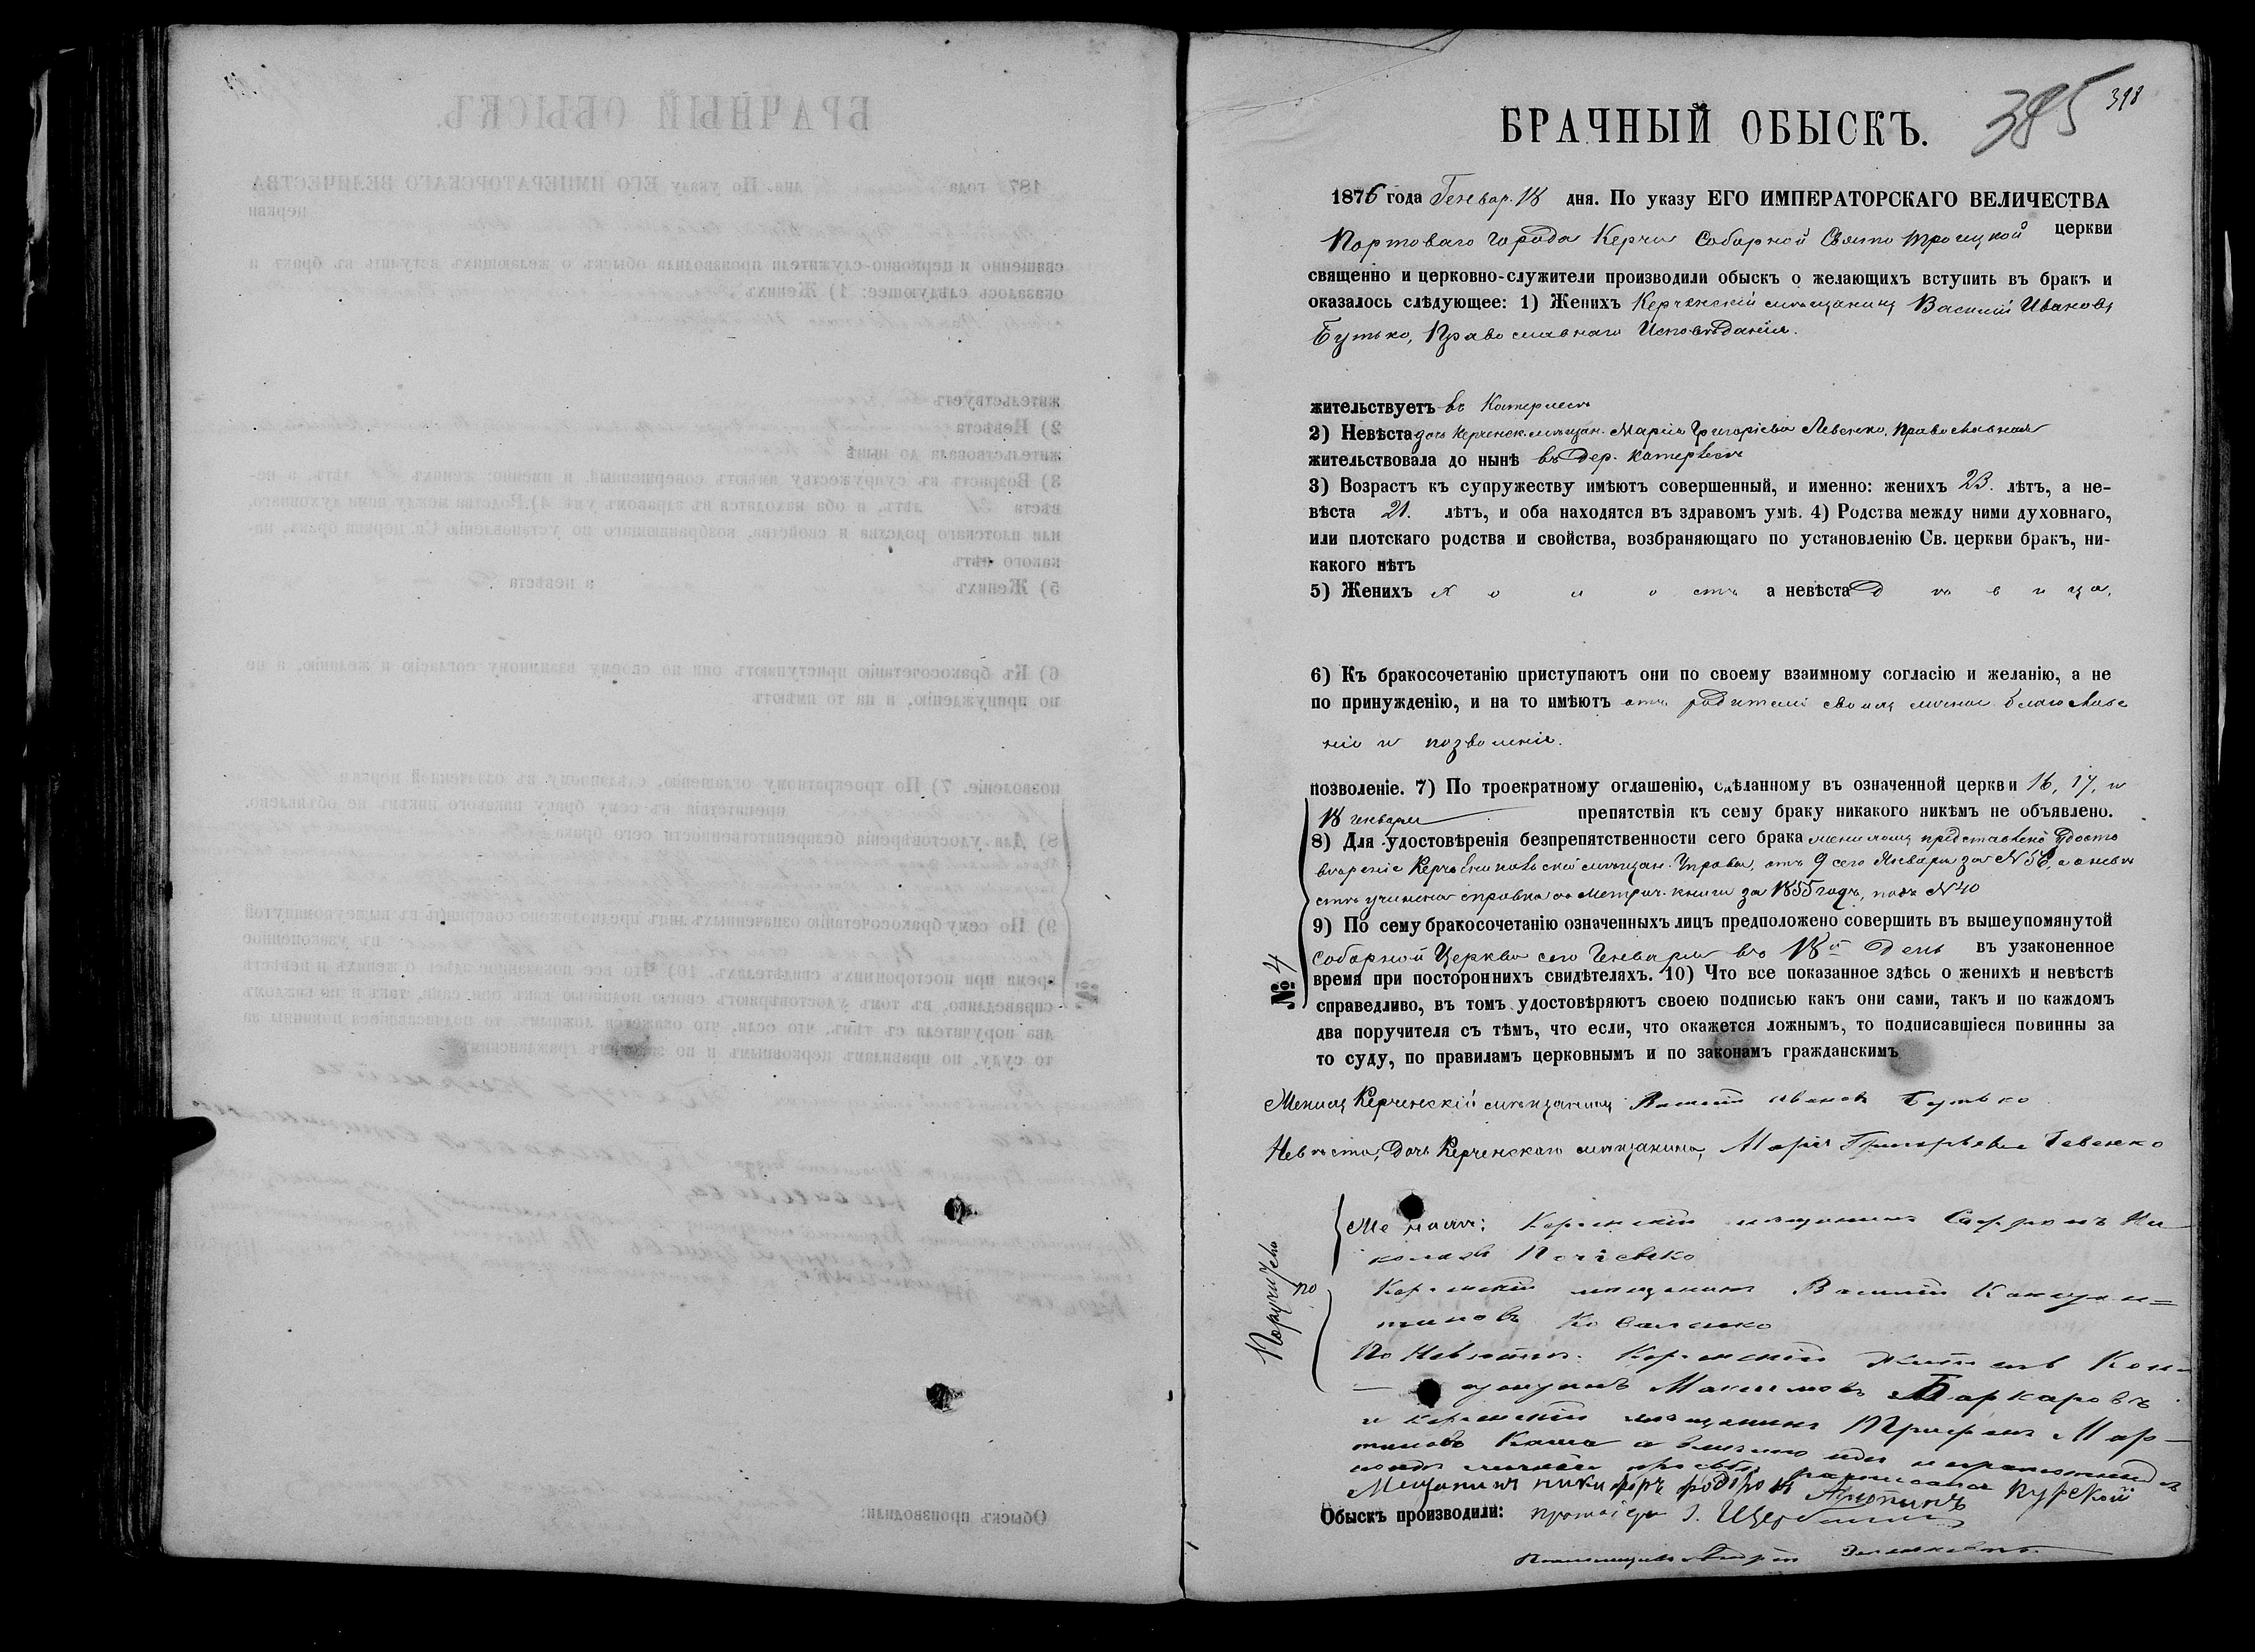 БРАЧНЫЙ ОБЫСКЪ.
385 398
1876 года Генвар. 18 дня. По указу ЕГО ИМПЕРАТОРСКАГО ВЕЛИЧЕСТВА
Портоваго города Керчи Соборной Свято Троицкой церкви
священно и церковно-служители производили обыскъ о желающихъ вступить въ бракъ и
оказалось слѣдующее: 1) Женихъ Керченскій мѣщанинъ Василій Ивановъ
Бутько, Православнаго Исповѣданія.
жительствуетъ въ Катерлесѣ
2) Невѣста дочь Керченск. мѣщан. Марія Григоріева Левенко, Православная
жительствовала до нынѣ въ дер. Катерлесѣ
3) Возрастъ къ супружеству имѣютъ совершенный, и именно: женихъ 23. лѣтъ, а не-
вѣста 21. лѣтъ, и оба находятся въ здравомъ умѣ. 4) Родства между ними духовнаго,
или плотскаго родства и свойства, возбраняющаго по установленію Св. церкви бракъ, ни-
какого нѣтъ
5) Женихъ холостъ а невѣста дѣвица.
6) Къ бракосочетанію приступаютъ они по своему взаимному согласію и желанію, а не
по принужденію, и на то имѣютъ отъ родителей своихъ личное благослове
ніе и позволеніе.
позволеніе. 7) По троекратному оглашенію, сдѣланному въ означенной церкви 16, 17, и
18 генваря препятствія къ сему браку никакого никѣмъ не объявлено.
8) Для удостовѣренія безпрепятственности сего брака женихомъ представлено удосто
вѣреніе Керчь Еникольской мѣщан. Управы, отъ 9 сего Января за N 58, а о невѣ
стѣ учинена справка въ метрич. книги за 1855 годъ, подъ N 40
9) По сему бракосочетанію означенныхъ лицъ предположено совершить въ вышеупомянутой
Соборной Церкви сего Генваря въ 18й день въ узаконенное
время при постороннихъ свидѣтеляхъ. 10) Что все показанное здѣсь о женихѣ и невѣстѣ
№ 4
справедливо, въ томъ удостовѣряютъ своею подписью какъ они сами, такъ и по каждомъ
два поручителя съ тѣмъ, что если, что окажется ложнымъ, то подписавшіеся повинны за
то суду, по правиламъ церковнымъ и по законамъ гражданскимъ
Женихъ Керченскій мѣщанинъ Василій Ивановъ Бутько
Невѣста, Дочь Керченскаго мѣщанина, Марія Григорьева Левенко
Поручители по
Женихѣ: Керченскій мещанинъ Софронъ Ни
колаевъ
Керченскій мещанинъ Василій Констан=
тиновъ Коваленко
По Невѣстѣ: Керченскій житель Кон
Максимовъ Баркаровъ
и керченскій мещанинъ Трифонъ Мар
тиновъ
личной просьбы росписался Курской
Мещанинъ никифоръ
Обыскъ производили: протоіерей І. Щербининъ